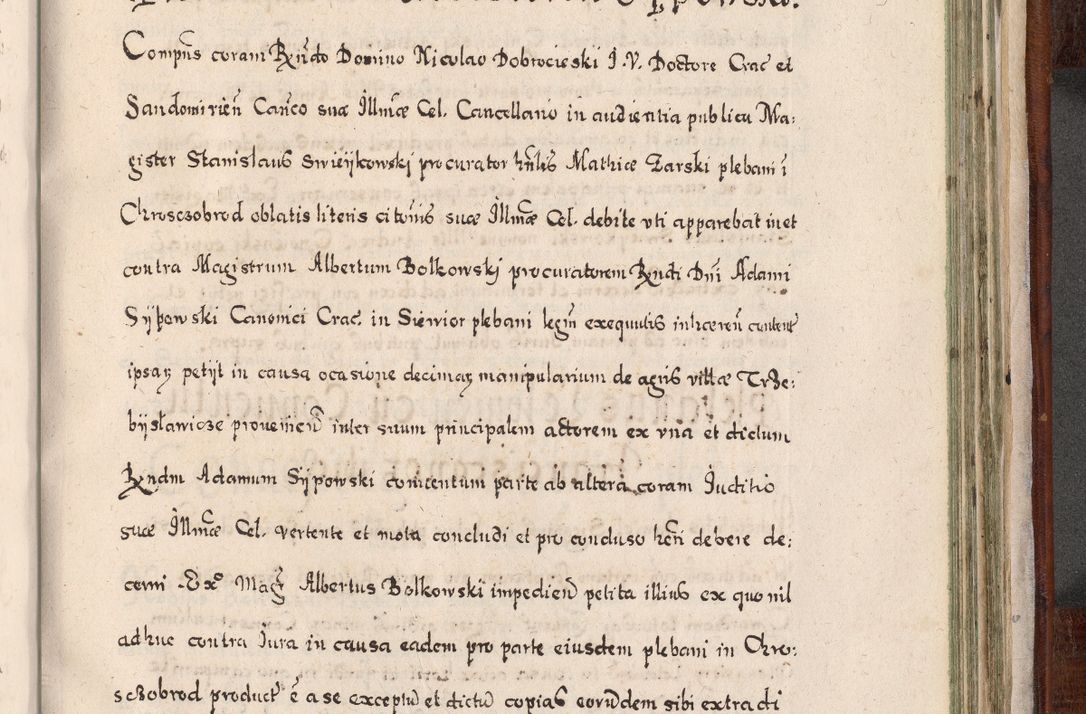 Compns coram Rndo Domino Nicolao Dobrocieski J. V. Doctore Crac et
Sandomirien Canco suæ Illmæ Cel. Cancellario in audientia publica Ma:
gister Stanislaus Swieijkowski procurator Mathiæ Zarski plebani i
Chrosczobrod oblatis literis citonis suæ Illmæ Cel. debite vti apparebat in et
contra Magistrum Albertum Bolkowski procuratorem Rndi Dni Adami
Sijpowski Canonici Crac. in Siewior plebani legm exequutis content
ipsaq petijt in causa ocasione decimaq manipularium de agris villæ Trze:
bijslawicze prouenien inter suum principalem actorem ex vna et dictum
Rndm Adamum Sijpowski conuentum parte ab altera coram Iuditio
suæ Illmæ Cel. vertente et mota concludi et pro concluso hcri debere de:
cerni Exo Mag Albertus Bolkowski impedien petita illius ex quo nil
adhuc contra Iura in causa eadem pro parte eiusdem plebani in Chro:
sczobrod product e a se exceptu et dictu copias eorudem sibi extradi